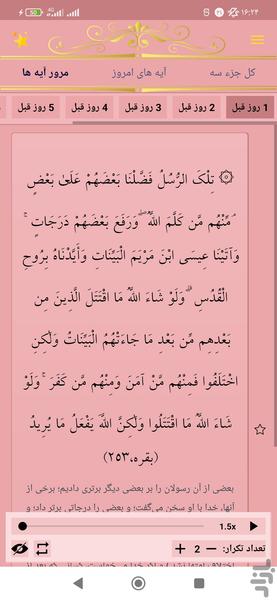 ۱۶:۲۴
50
4G
کل جزء سه
آیه های امروز
مرور آیه ها
1 روز قبل
2 روز قبل
3 روز قبل
4 روز قبل
5 روز قبل
۞ تِلْكَ الرُّسُلُ فَضَّلْنَا بَعْضَهُمْ عَلَىٰ بَعْضٍ
ۘ مِّنْهُم مَّن كَلَّمَ اللَّهُ ۖ وَرَفَعَ بَعْضَهُمْ دَرَجَاتٍ ۚ
وَآتَيْنَا عِيسَى ابْنَ مَرْيَمَ الْبَيِّنَاتِ وَأَيَّدْنَاهُ بِرُوحِ
الْقُدُسِ ۗ وَلَوْ شَاءَ اللَّهُ مَا اقْتَتَلَ الَّذِينَ مِن
بَعْدِهِم مِّن بَعْدِ مَا جَاءَتْهُمُ الْبَيِّنَاتُ وَلَٰكِنِ
اخْتَلَفُوا فَمِنْهُم مَّنْ آمَنَ وَمِنْهُم مَّن كَفَرَ ۚ وَلَوْ
شَاءَ اللَّهُ مَا اقْتَتَلُوا وَلَٰكِنَّ اللَّهَ يَفْعَلُ مَا يُرِيدُ
(بقره،۲۵۳)
بعضی از آن رسولان را بر بعضی دیگر برتری دادیم؛ برخی از
آنها، خدا با او سخن می‌گفت؛ و بعضی را درجاتی برتر داد؛ و
1.5x
تعداد تکرار:
+ 2 −
بازار